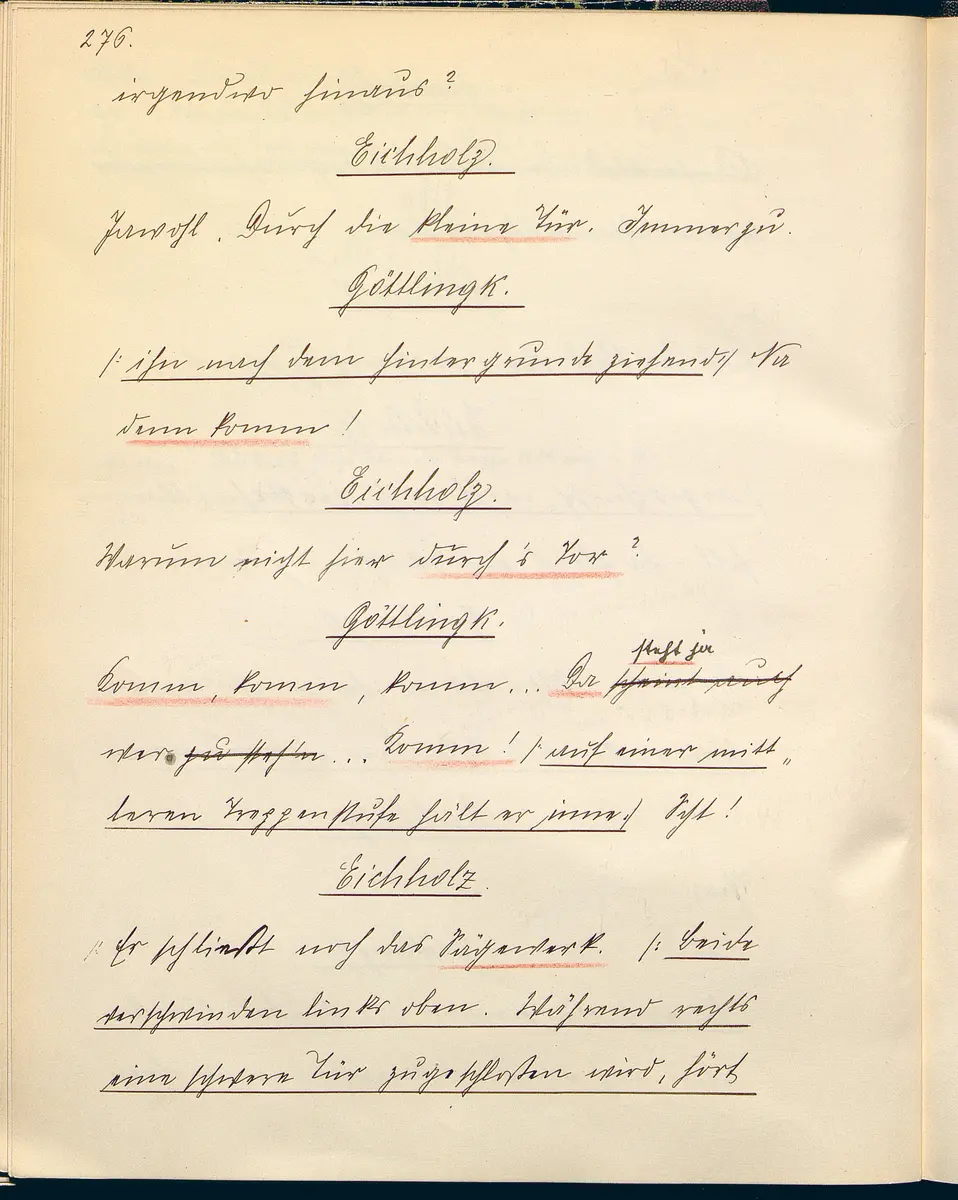 276.
irgendwo hinaus?
Eichholz.
Jawohl. Durch die kleine Tür. Immerzu.
Göttlingk.
/: ihn nach dem Hintergrunde ziehend :/ Na
denn komm!
Eichholz.
Warum nicht hier durch's Tor?
Göttlingk.
steht ja
Komm, komm, komm... Da scheint auch
wer zu steh'n ... Komm! /: auf einer mitt„
leren Treppenstufe hält er inne :/ Scht!
Eichholz.
/: Er schließt noch das Sägewerk. /: Beide
verschwinden links oben. Während rechts
eine schwere Tür zugeschloßen wird, hört